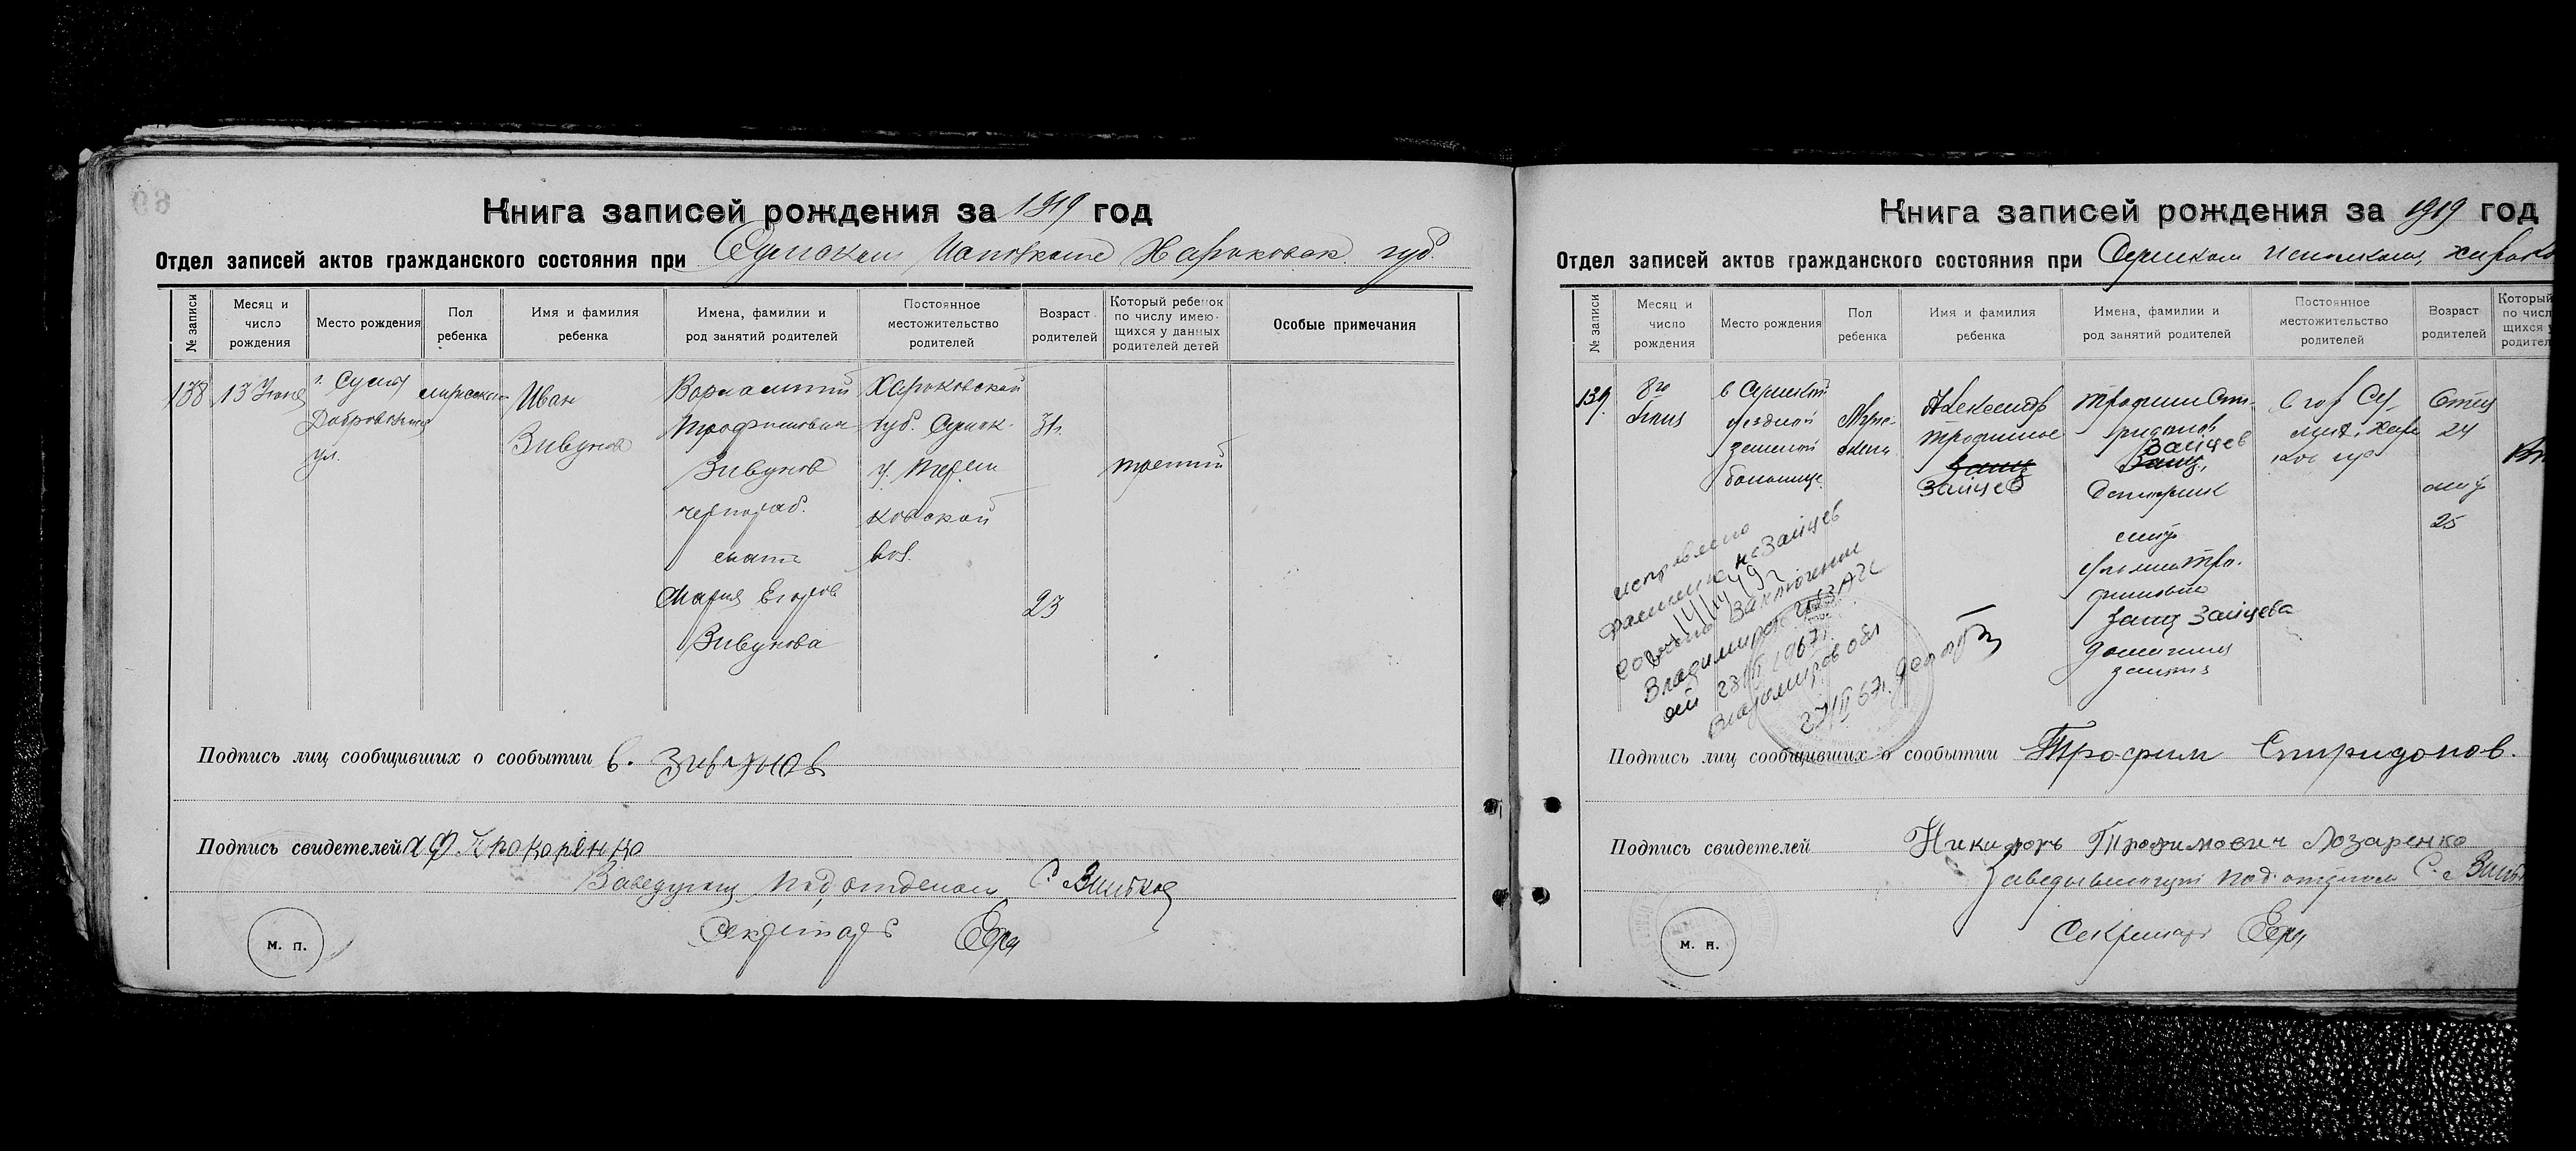 Книга записей рождения за 1919 год
Отдел записей актов гражданского состояния при Сумском Харьковск. губ.
№ записи
Месяц и число рождения
Место рождения
Пол ребенка
Имя и фамилия ребенка
Имена, фамилии и род занятий родителей
Постоянное местожительство родителей
Возраст родителей
Который ребенок по числу имеющихся у данных родителей детей
Особые примечания
138
13 Июня
г. Сумы
ул.
мужской
Иван
Зивунов
Варламтий
Трофимович
Зивунов
чернораб.
мать
Мария Егоров
Зивунова
Харьковской
губ. Сумск.
у.
ковской
вол.
31
23
третий
Подпись лиц сообщивших о сообытии в. Зивунов
Подпись свидетелей
Заведующ. подотделом С.
Секретарь
м. п.
Книга записей рождения за 1919 год
Отдел записей актов гражданского состояния при Сумском Исполкоме,
№ записи
Месяц и число рождения
Место рождения
Пол ребенка
Имя и фамилия ребенка
Имена, фамилии и род занятий родителей
Постоянное местожительство родителей
Возраст родителей
Который
по числ
щихся у
родител
139.
8го
в Сумской
уездной
земской
больнице
Муж-
ской
Александр
Трофимов
Заяц
Зайцев
Трофим Спи-
ридонов
Зайцев
Заяц,
мать
Заяц Зайцева
домашния
занятия
в гор Су-
мах, Харь
ков губ
Отец
24
мать
25
исправлено
фамилия на Зайцев
согласно Заключения
Владимирск ЗАГС
23/II 1967г
Владимиров обл
27/II 67г.
Подпись лиц сообщивших о сообытии Трофим Спиридонов.
Подпись свидетелей Никифоръ Трофимович Лозаренко
Заведывающий подотделом С.
Секретарь
м. п.